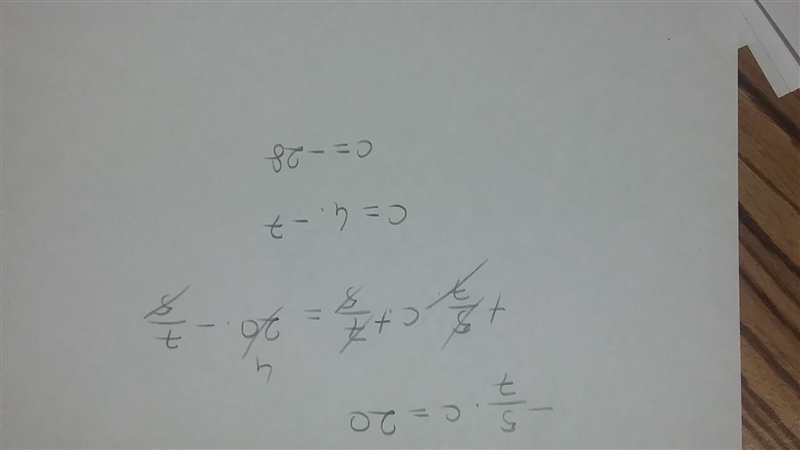 -5/7 · c = 20
+5/7 c · +7/5 = 20 · -7/5
4
c = 4 · -7
c = -28